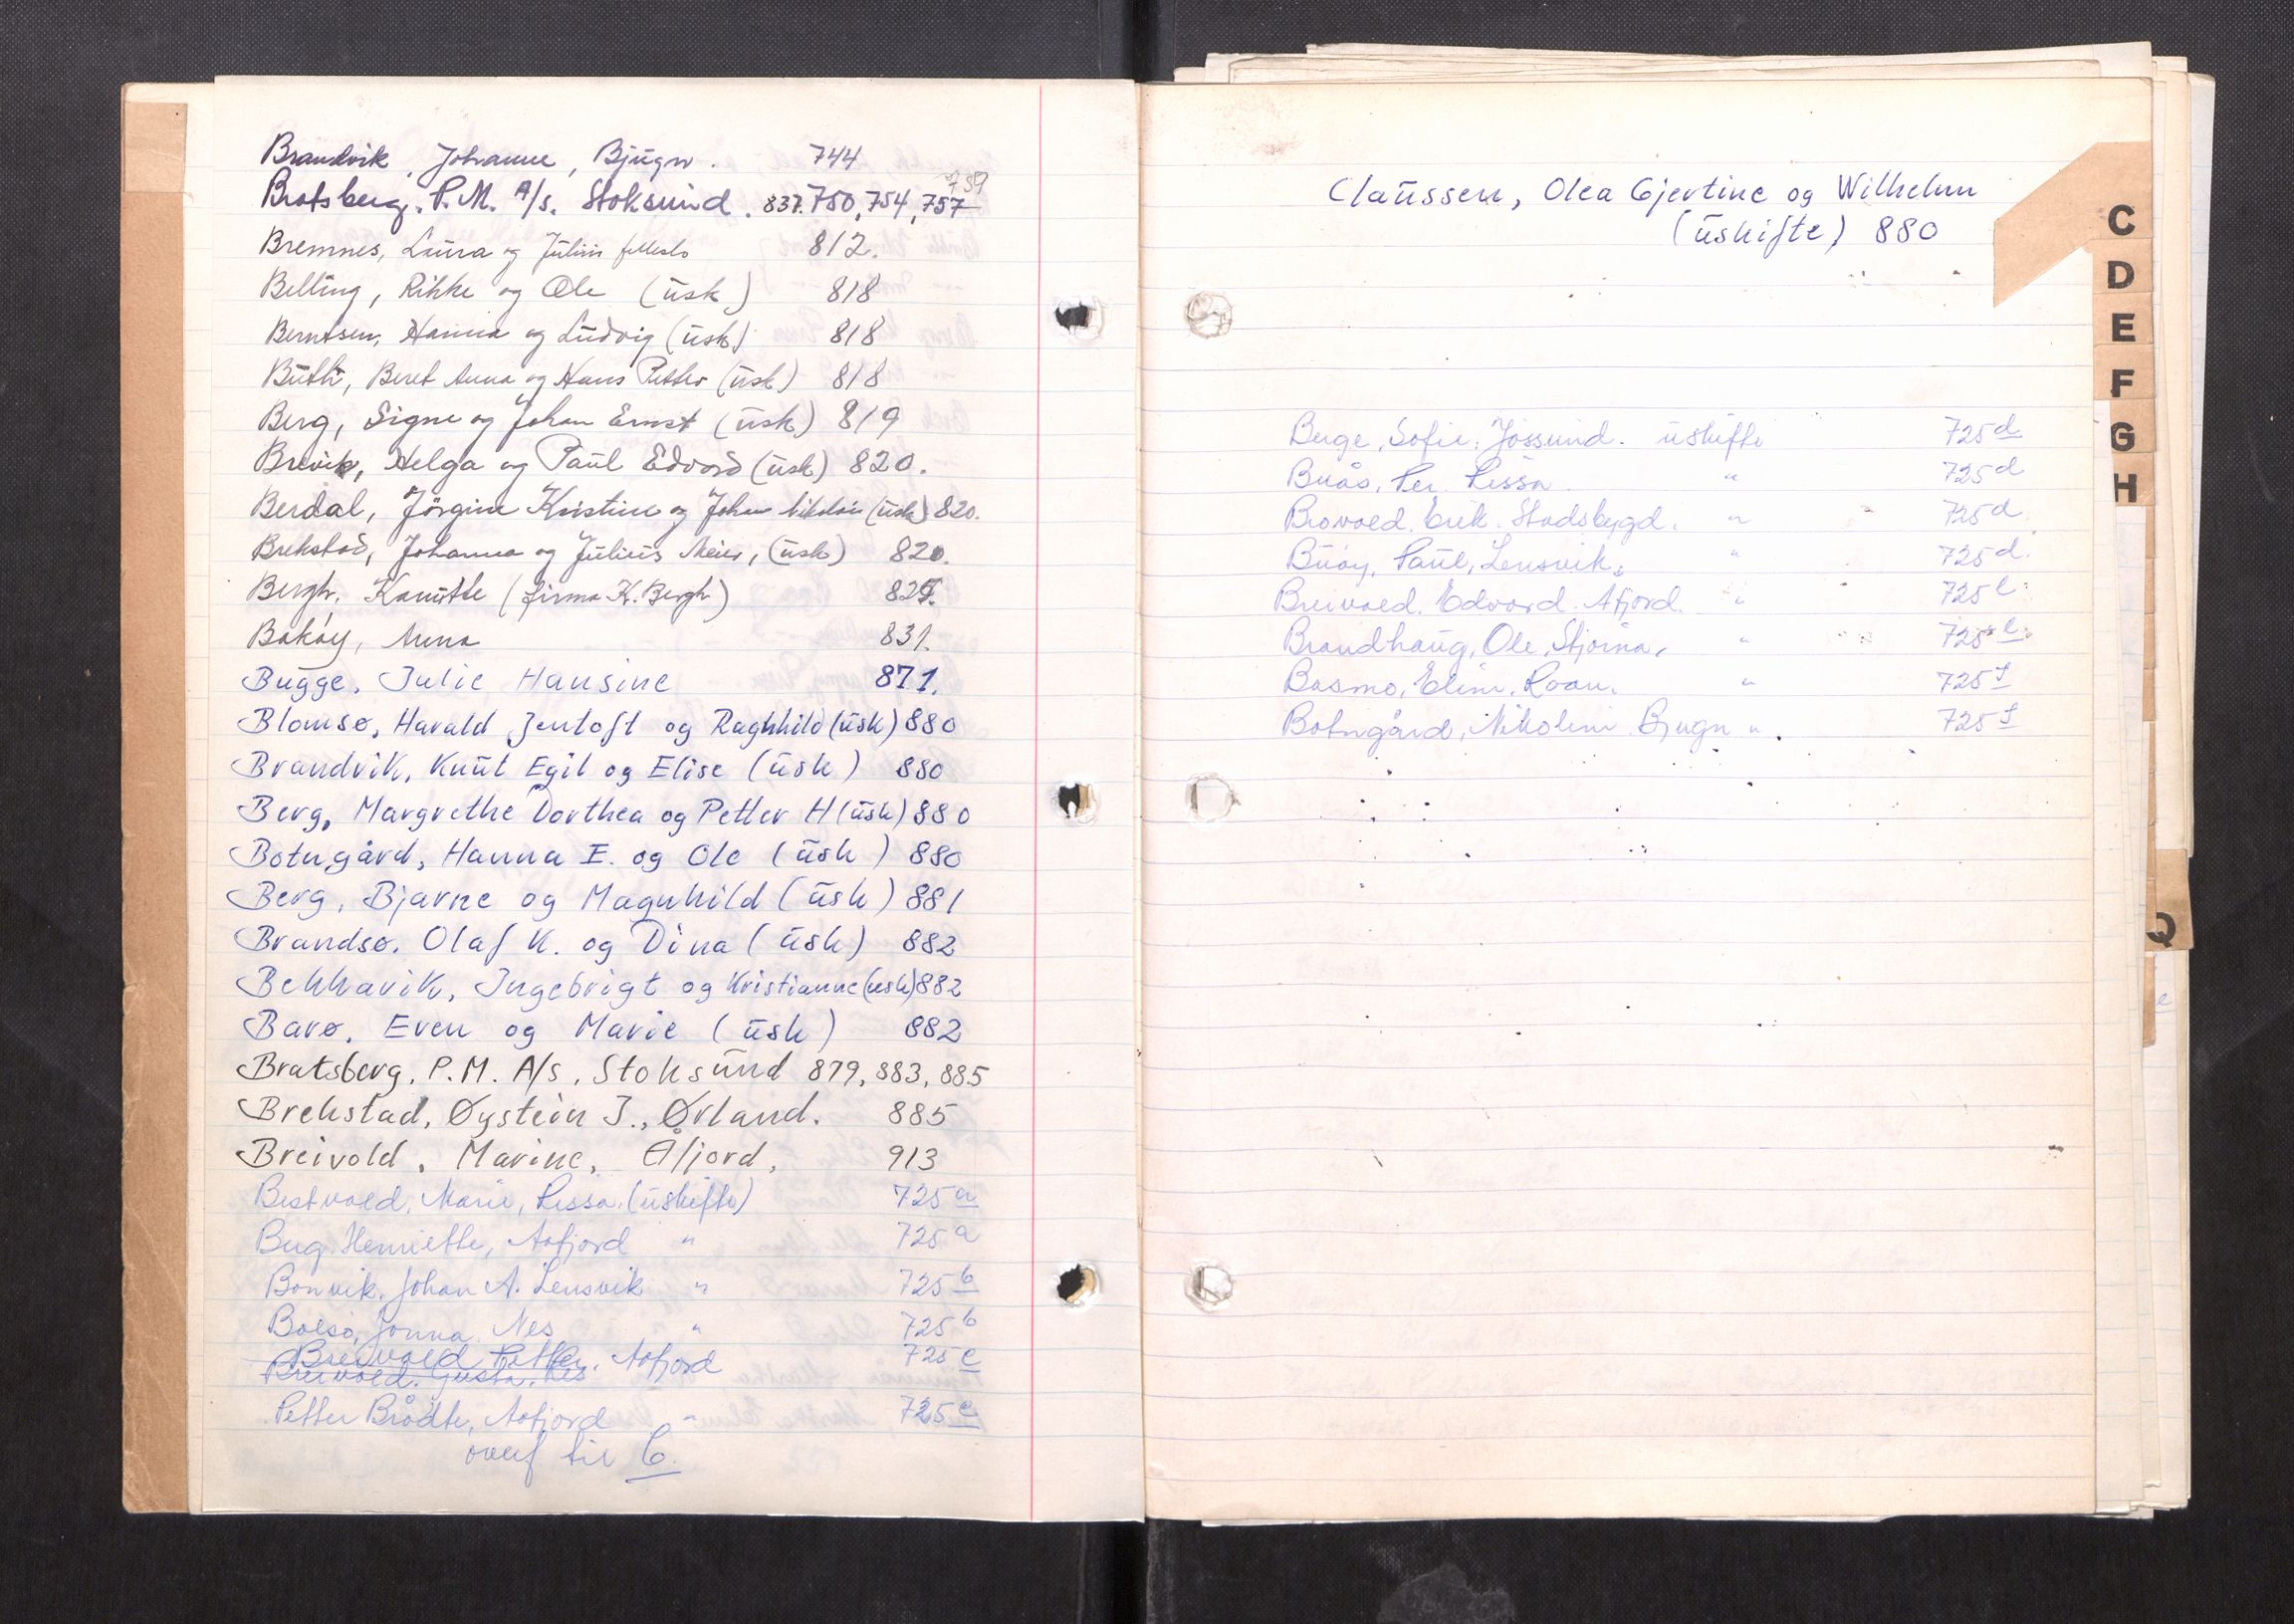 Brandvik, Johanne, Bjugn. 744
759
Bratsberg. P.M. A/s. Stoksund. 837. 750, 754, 757
Bremnes, Laura og Julius 812.
Belling, Rikke og Ole (usk) 818
Berntsen, Hanna og Ludvig (usk) 818
Beret Anna og Hans Petter (usk) 818
Berg, Signe og Johan Ernst (usk) 819
Brevik, Helga og Paul Edvard (usk) 820.
Berdal, Jörgine Kristine og Johan Nikolai (usk) 820.
Brekstad, Johanna og Julius Meier, (usk) 820.
Bergh, Kamitte (firma K. Bergh)
Bakøy, Anna 831.
Bugge, Julie Hansine 871.
Blomsø, Harald Jentoft og Raghhild (usk) 880
Brandvik, Knut Egil og Elise (usk) 880
Berg, Margrethe Dorthea og Petter H (usk) 880
Botngård, Hanna E. og Ole (usk) 880
Berg, Bjarne og Magnhild (usk) 881
Brandsø, Olaf K. og Dina (usk) 882
Bekkavik, Ingebrigt og Kristianne (usk) 882
Barø, Even og Marie (usk) 882
Bratsberg, P.M. A/s, Stoksund 879, 883, 885
Brekstad, Øystein J., Ørland. 885
Breivold, Marine, Åfjord, 913
Bestvold, Marie, Rissa. (uskifte) 725 a
Henriette, Aafjord " 725 a
Bonvik, Johan A. Lensvik " 725 b
Bolsø, Jonna Nes " 725 b
Breivold Petter, Aafjord 725 c
Breivold. Gusta. Nes
Petter Brødte, Aafjord " 725 c
overf til C.
Claussen, Olea Gjertine og Wilhelm
(uskifte) 880
C
D
E
F
G
H
Q
Berge, Sofie, Jössund. uskifte 725 d
Buås, Per. Rissa. " 725 d
Brovold. Erik. Stadsbygd. " 725 d
Buøy, Paul, Lensvik, " 725 d.
Breivold. Edvard. Åfjord. " 725 e.
Brandhaug, Ole, Stjørna, " 725 e.
Basmo, Eline, Roan. " 725 f
Botngård, Nikoline Bjugn " 725 f